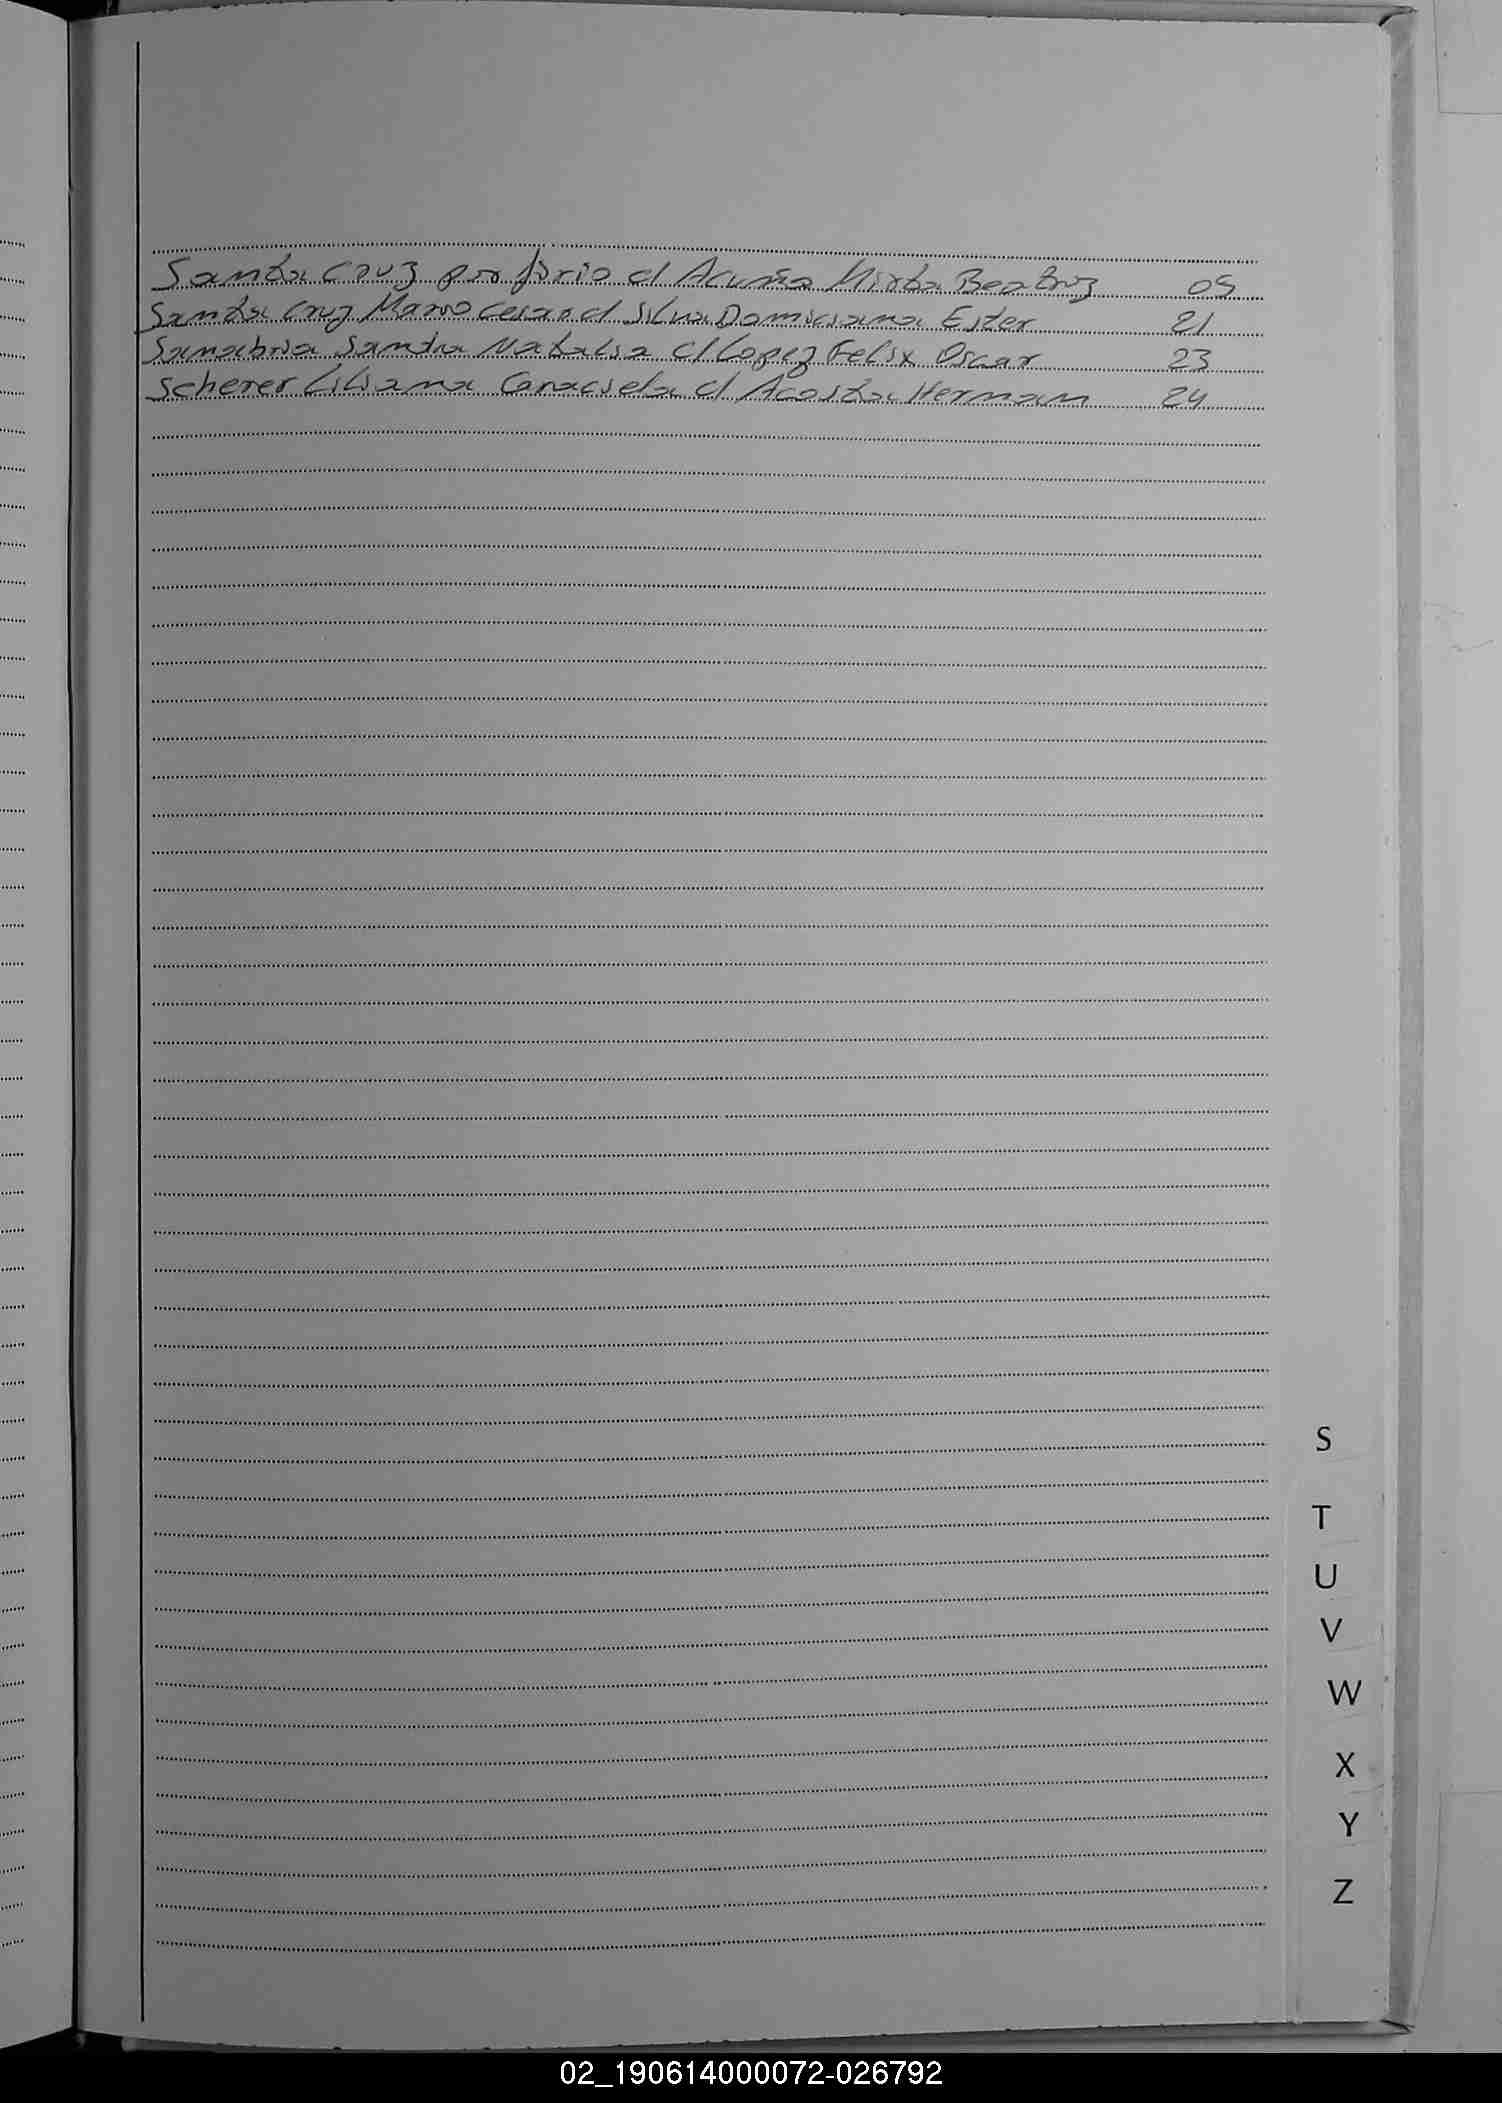 Santa Cruz porfirio c/ Acuña Mirta Beatriz 05
Santa Cruz Mario Cesar c/ Silva Domiciana Ester 21
Sanabria Sandra Natalia c/ Lopez Felix Oscar 23
Scherer Liliana Graciela c/ Acosta Herman 24
S
T
U
V
W
X
Y
Z
02_190614000072-026792